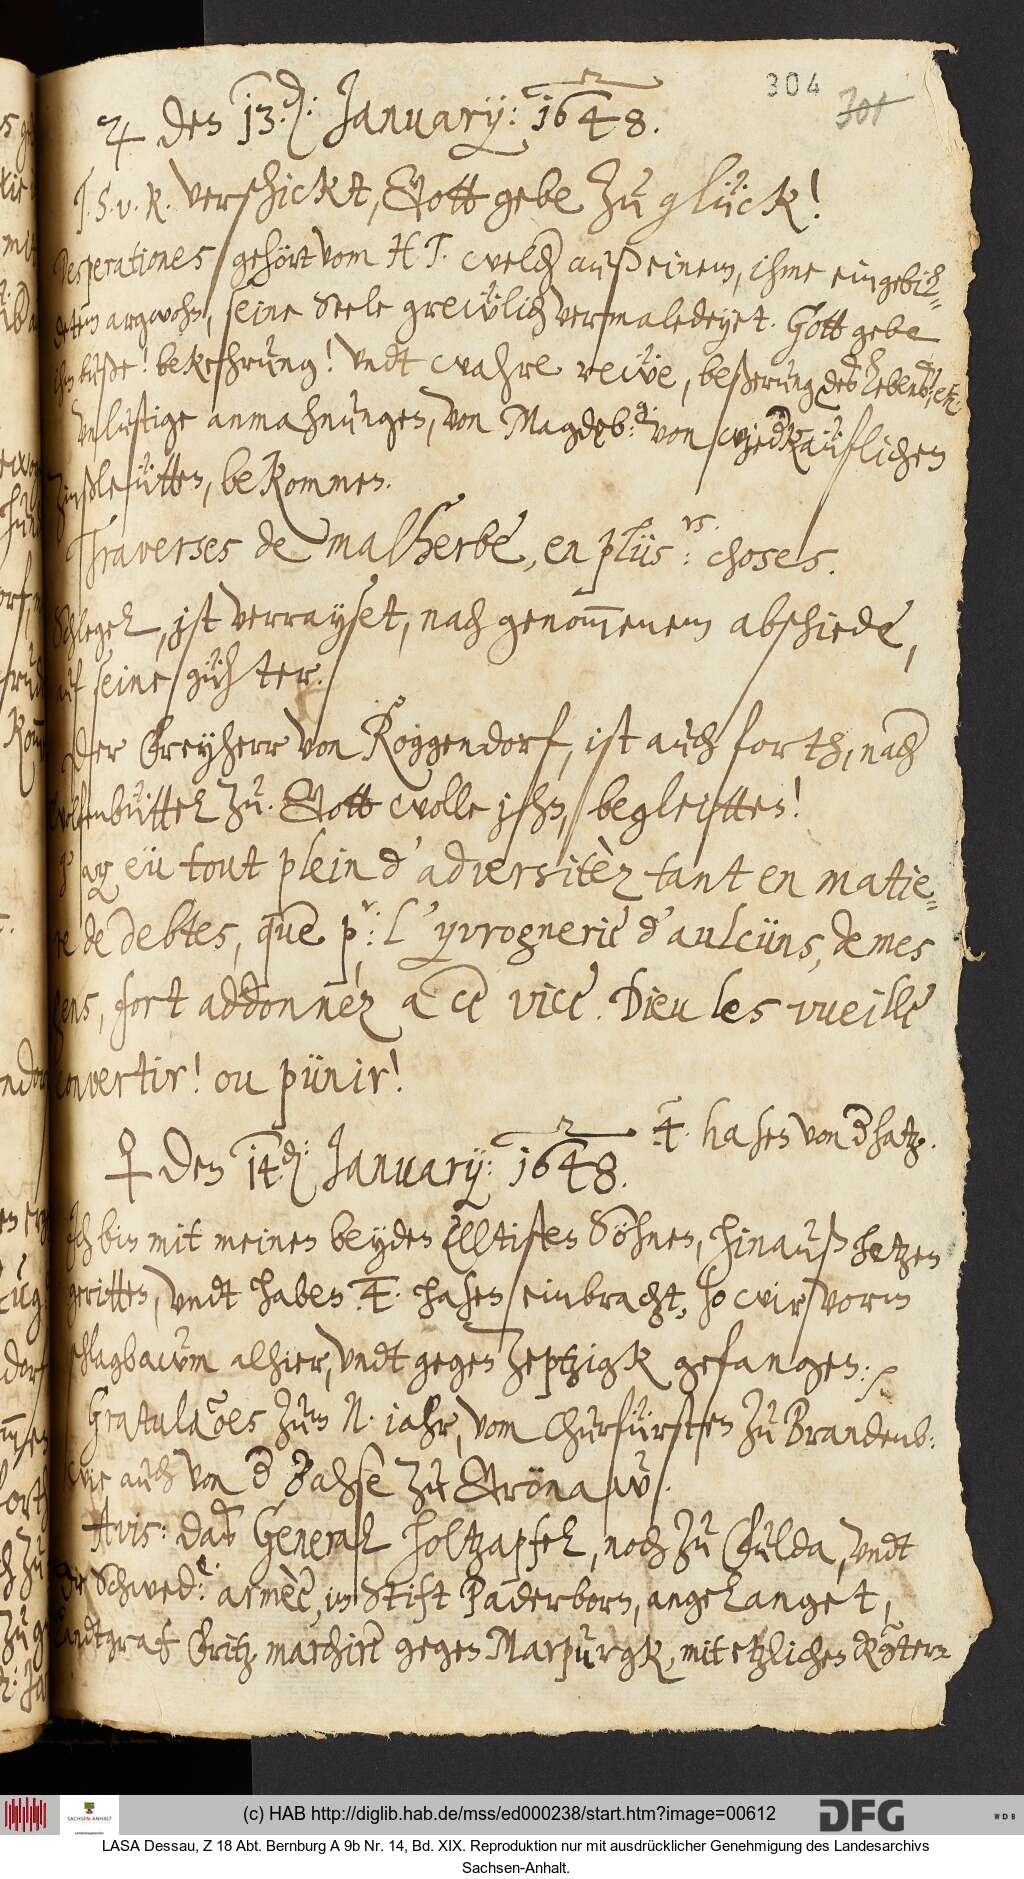 304
301
♃ den 13.d: January: 1648.
J. S. v. K. verschickt, Gott gebe zu glück!
Desperationes gehört vom H T. welch auß einem, ihme eingebil-
detem argwohn, seine Seele grewlich vermaledeyet. Gott gebe
ihm buße! bekehrung! undt wahre rewe, beßerung deß lebens, etc.
Unlustige anmahnungen, von Magdeb: von wiedkäuflichen
Zinßleütten, bekommen.
Thraverses de malherbe, en plüs:rs choses.
Schlegel, ist verrayset, nach genom̄enem abschiede,
auf seine güh ter.
Der Freyherr von Roggendorf, ist auch forth, nach
Wolfenbüttel zu. Gott wolle ihn, begleitten!
J' ay eü tout plein d'adversitèz tant en matie-
re de debtes, que p:r l'yvrognerie d'aulcüns, de mes
gens, fort addonnèz a ce vice. Dieu les vueille
convertir! ou pünir!
♀ den 14.d: January: 1648. 4. hasen von d hatz.
Ich bin mit meinen beyden Elltisten Söhnen, hinauß hetzen
geritten, undt haben 4. hasen einbracht, so wir vorm
schlagbawm alhier, undt gegen Zeptzigk gefangen.
Gratulaões zum N. iahr, vom Churfürsten zu Brandenb:
wie auch von d Base zu Grönaw.
Avis: daß General holtzapfel, noch zu Fulda, undt
die Schwed:e armèe, im Stift Paderborn, angelanget,
Landtgraf Fritz, marchire gegen Marpurgk, mit etzlichen Rgtern
(c) HAB http://diglib.hab.de/mss/ed000238/start.htm?image=00612
SACHSEN-ANHALT
DFG
WDB
LASA Dessau, Z 18 Abt. Bernburg A 9b Nr. 14, Bd. XIX. Reproduktion nur mit ausdrücklicher Genehmigung des Landesarchivs
Sachsen-Anhalt.